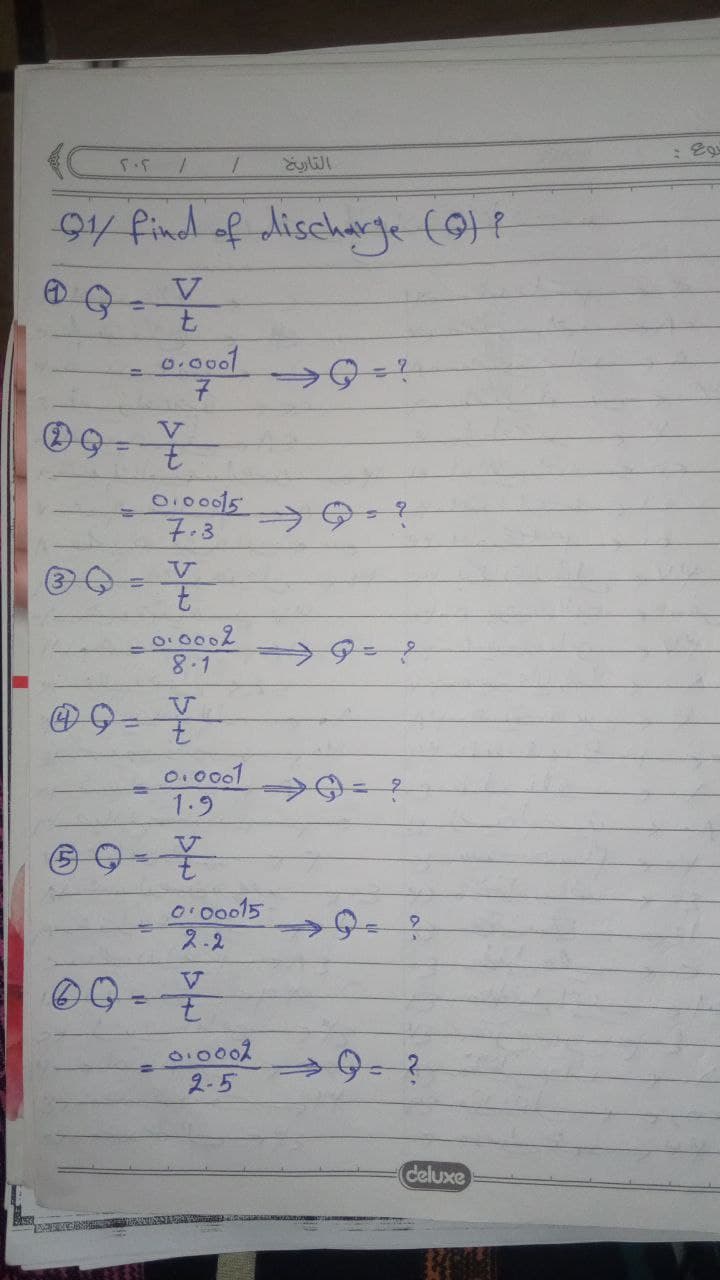 التاريخ / / ٢٠٢
Q1/ find of discharge (Q)?
① Q = V/t
= 0.0001/7 ⟹ Q = ?
② Q = V/t
= 0.00015/7.3 ⟹ Q = ?
③ Q = V/t
= 0.0002/8.1 ⟹ Q = ?
④ Q = V/t
= 0.0001/1.9 ⟹ Q = ?
⑤ Q = V/t
= 0.00015/2.2 ⟹ Q = ?
⑥ Q = V/t
= 0.0002/2.5 ⟹ Q = ?
deluxe